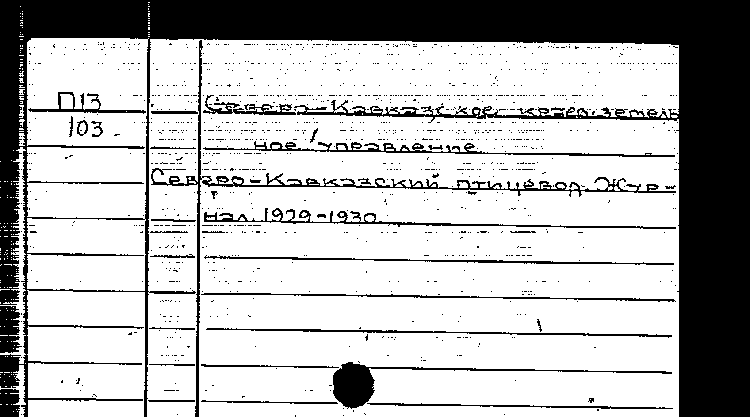 П13
103
Северо-Кавказское краев. земель
ное управление
Северо-Кавказский птицевод. Жур-
нал. 1929-1930